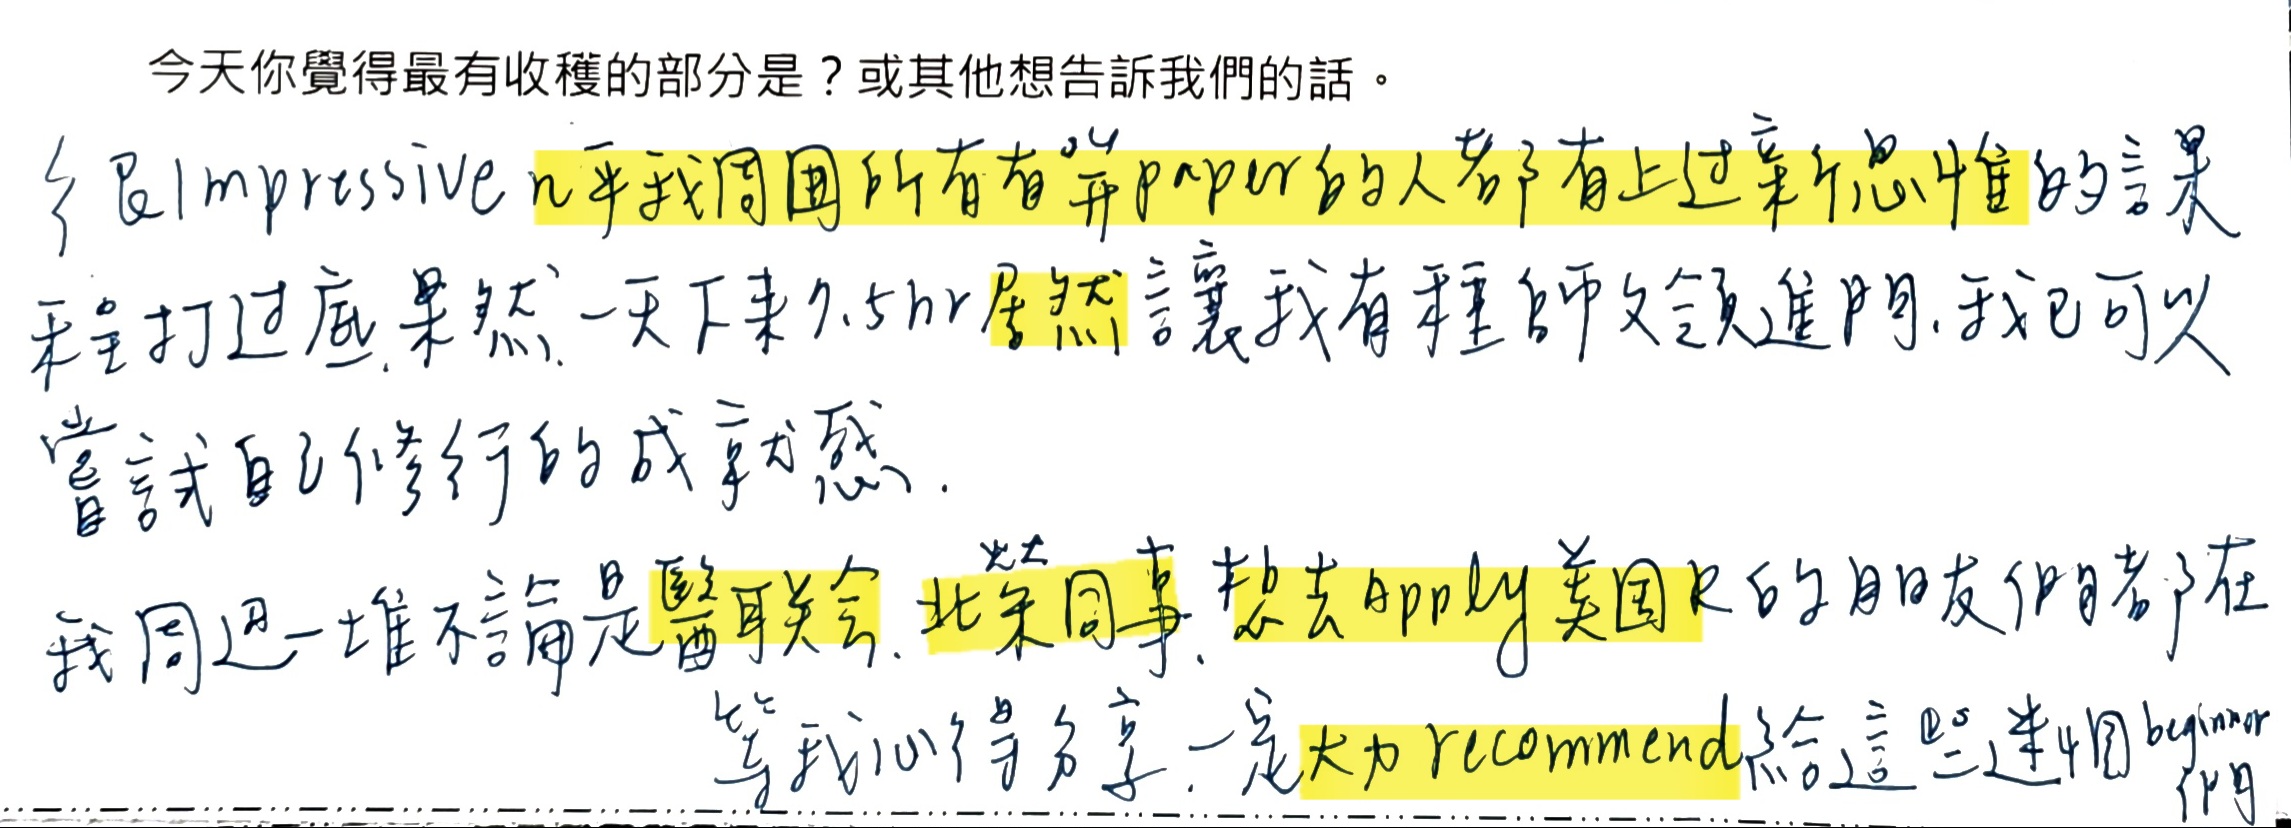 今天你覺得最有收穫的部分是？或其他想告訴我們的話。
很impressive 几乎我周圍所有有算paper的人都有上过新思惟的課
程打过底.果然.一天下来7.5hr居然讓我有種師父領進門.我已可以
嘗試自己修行的成就感.
我周遇一堆不論是醫联会.北榮同事.想去apply美国R的朋友們都在
等我心得分享.一定大力recommend給這些迷惘beginner們